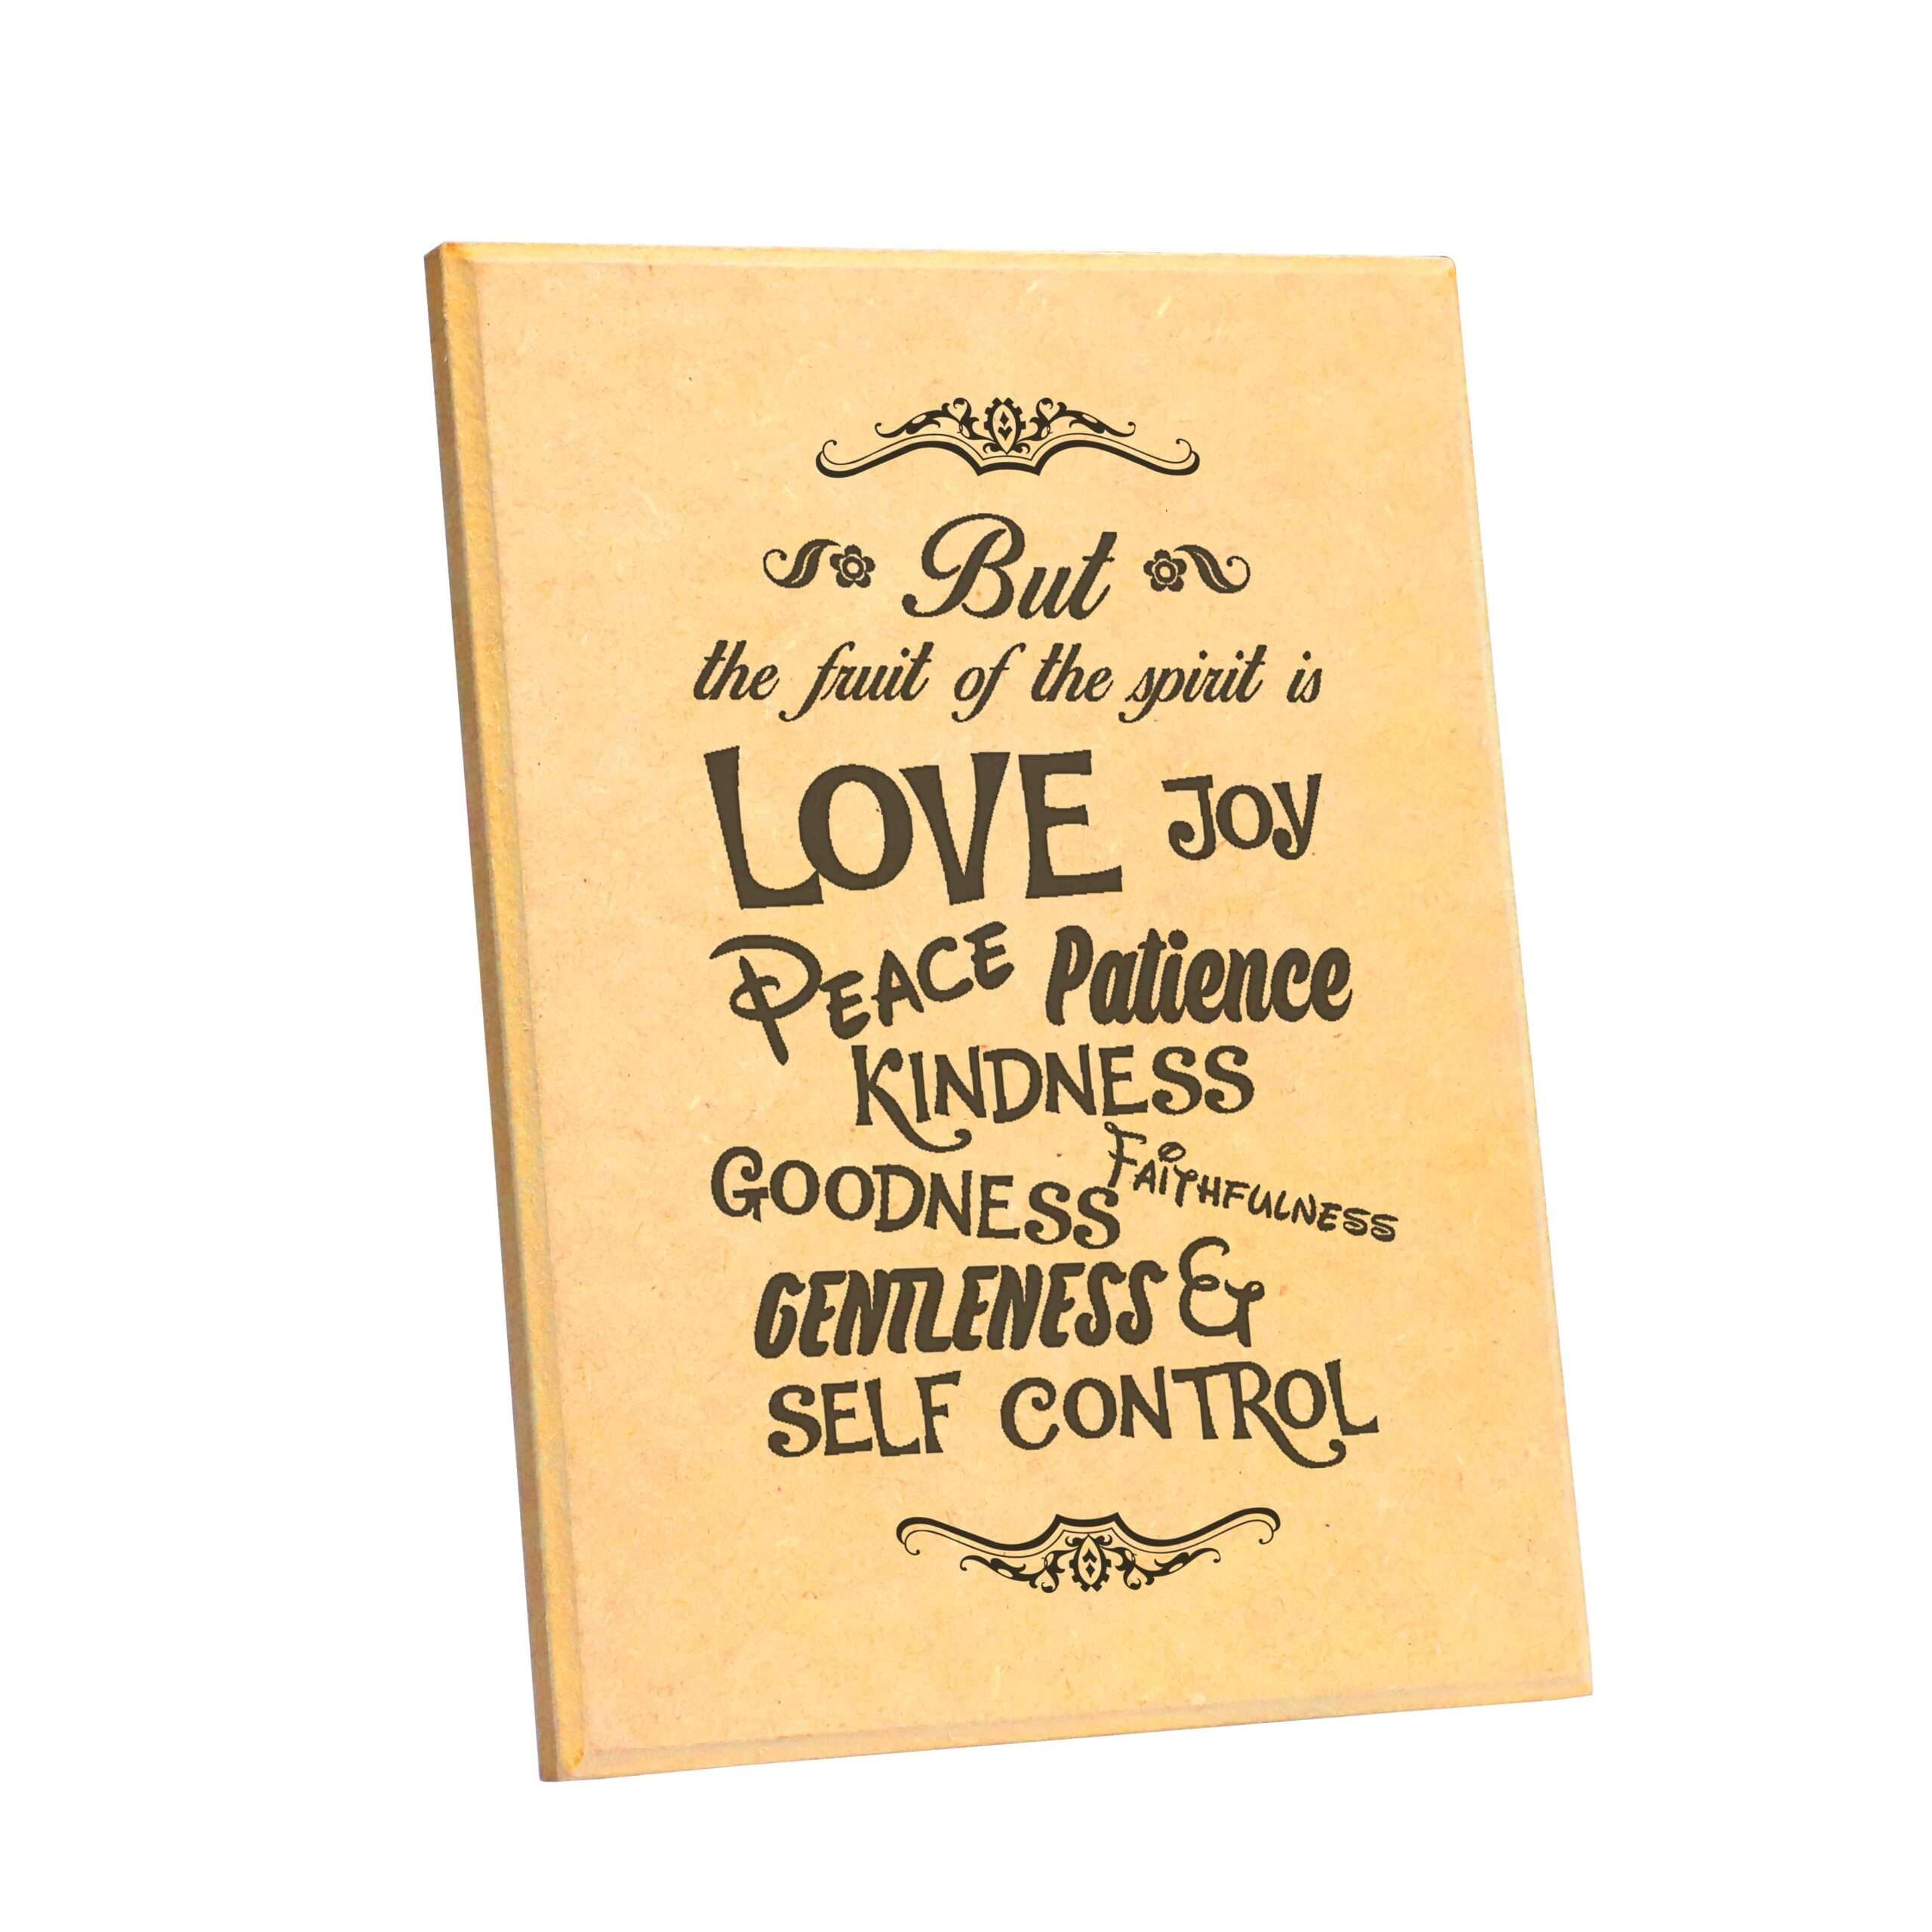 But
the fruit of the spirit is
LOVE JOY
PEACE Patience
KINDNESS
GOODNESS FAITHFULNESS
GENTLENESS &
SELF CONTROL